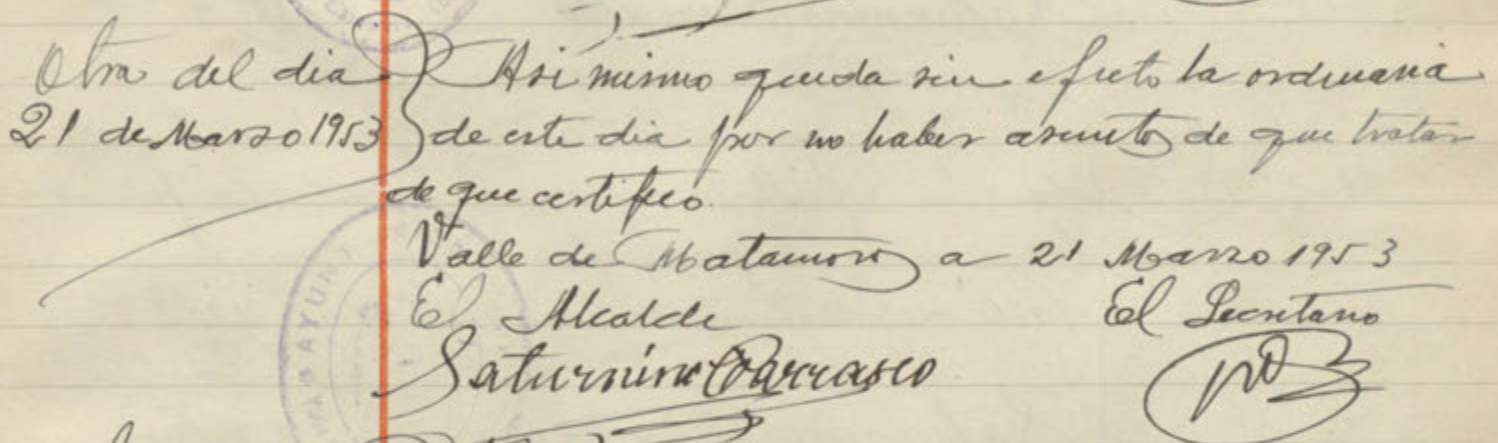 Otra del dia
21 de Marzo 1953
Asi mismo queda sin efecto la ordinaria
de este dia por no haber asuntos de que tratar
de que certifico.
Valle de Matamoros a 21 Marzo 1953
El Alcalde
El Secretario
Saturnino Carrasco
AYUNT